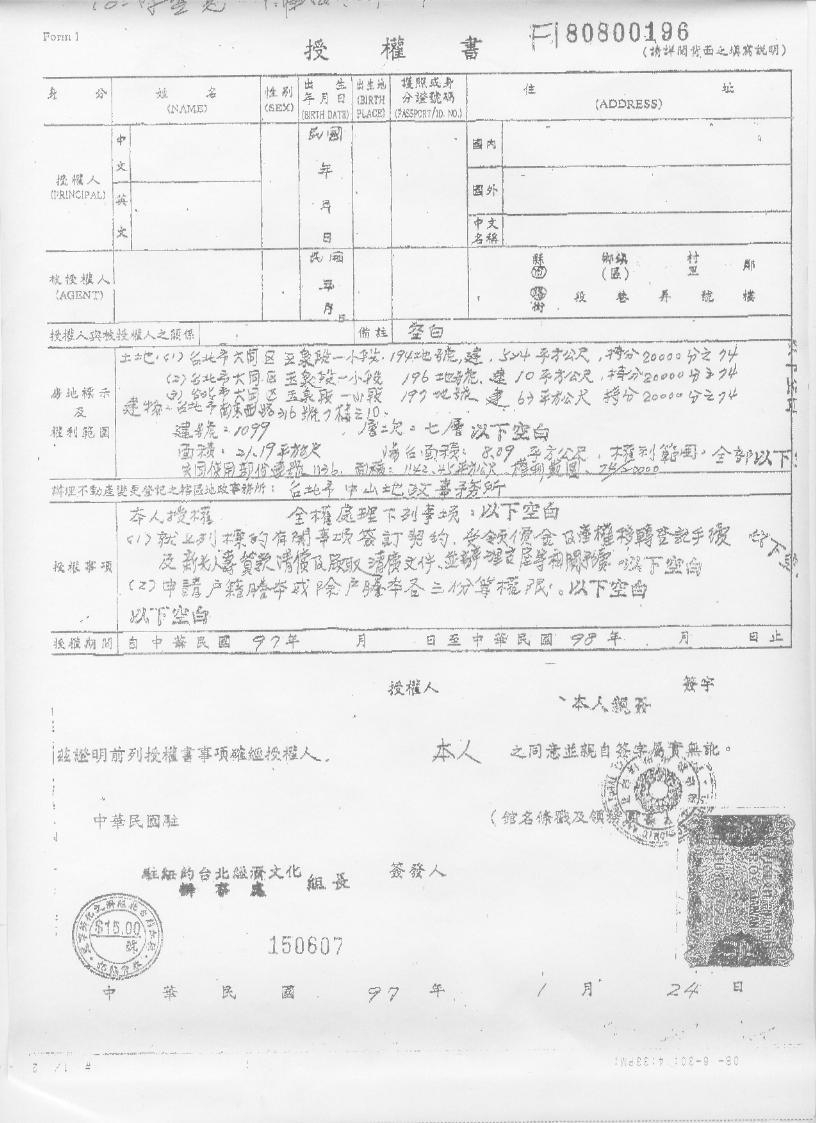 Form 1
授權書
F180800196
(請詳閱背面之填寫說明)
身分 姓名 (NAME) 性別 (SEX) 出生年月日 (BIRTH DATE) 出生地 (BIRTH PLACE) 護照或身分證號碼 (PASSPORT/ID. NO.) 住址 (ADDRESS)
授權人 (PRINCIPAL) 中文 英文 民國 年 月 日 國內 國外 中文名稱
被授權人 (AGENT) 民國 年 月 日 縣市 鄉鎮(區) 村里 鄰
路街 段 巷 弄 號 樓
授權人與被授權人之關係 備註 空白
房地標示及權利範圍
土地:(1)台北市大同区玉泉段一小段,194地號,建,524平方公尺,持分20000分之74
(2)台北市大同区玉泉段一小段 196地號,建10平方公尺,持分20000分之74
(3)台北市大同区玉泉段一小段 197地號,建 63平方公尺 持分20000分之74
建物:台北市南京西路316號7樓之10.
建號:1099 層次:七層 以下空白
面積:21.19平方公尺 陽台面積:8.09平方公尺,權利範圍:全部以下
共同使用部份建號1136, 面積:1142.45平方公尺 權利範圍:74/20000
辦理不動產變更登記之轄區地政事務所:台北市中山地政事務所
授權事項
本人授權 全權處理下列事項:以下空白
(1)就上列標的有關事項簽訂契約,
及新光人壽貸款清償及 以下空白
(2)申請户籍謄本或除户謄本各三份等權限。以下空白
以下空白
授權期間 自中華民國97年 月 日至中華民國98年 月 日止
授權人 簽字
本人親簽
茲證明前列授權書事項確經授權人 本人 之同意並親自簽字屬實無訛。
中華民國駐 (館名條戳及領務
駐紐約台北經濟文化辦事處 組長 簽發人
$15.00
號
150607
中華民國 97年 1月 24日